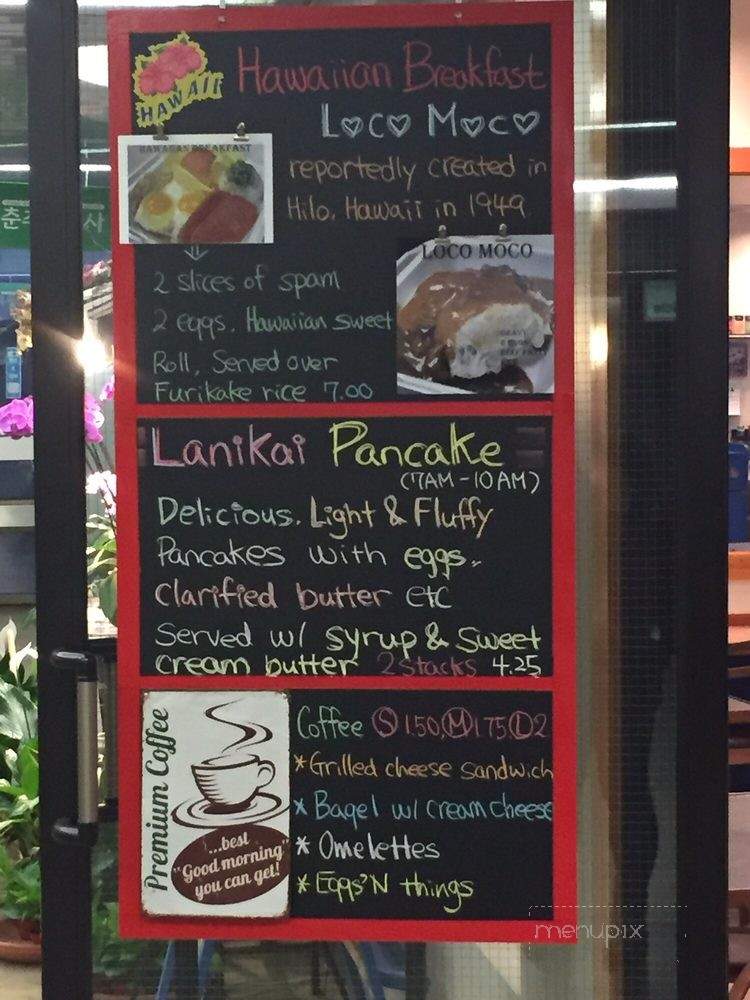 HAWAII
Hawaiian Breakfast
Loco Moco
HAWAIIAN BREAKFAST
reportedly created in
Hilo, Hawaii in 1949
LOCO MOCO
2 slices of spam
2 eggs. Hawaiian sweet
Roll, Served over
Furikake rice 7.00
Lanikai Pancake
(7AM-10AM)
Delicious. Light & Fluffy
Pancakes with eggs,
clarified butter etc
Served w/ syrup & sweet
cream butter 2 stacks 4.25
Premium Coffee
...best
"Good morning"
you can get!
Coffee S 1.50, M 1.75 L 2
*Grilled cheese sandwich
* Bagel w/ cream cheese
* Omelettes
* Eggs'N things
menupix